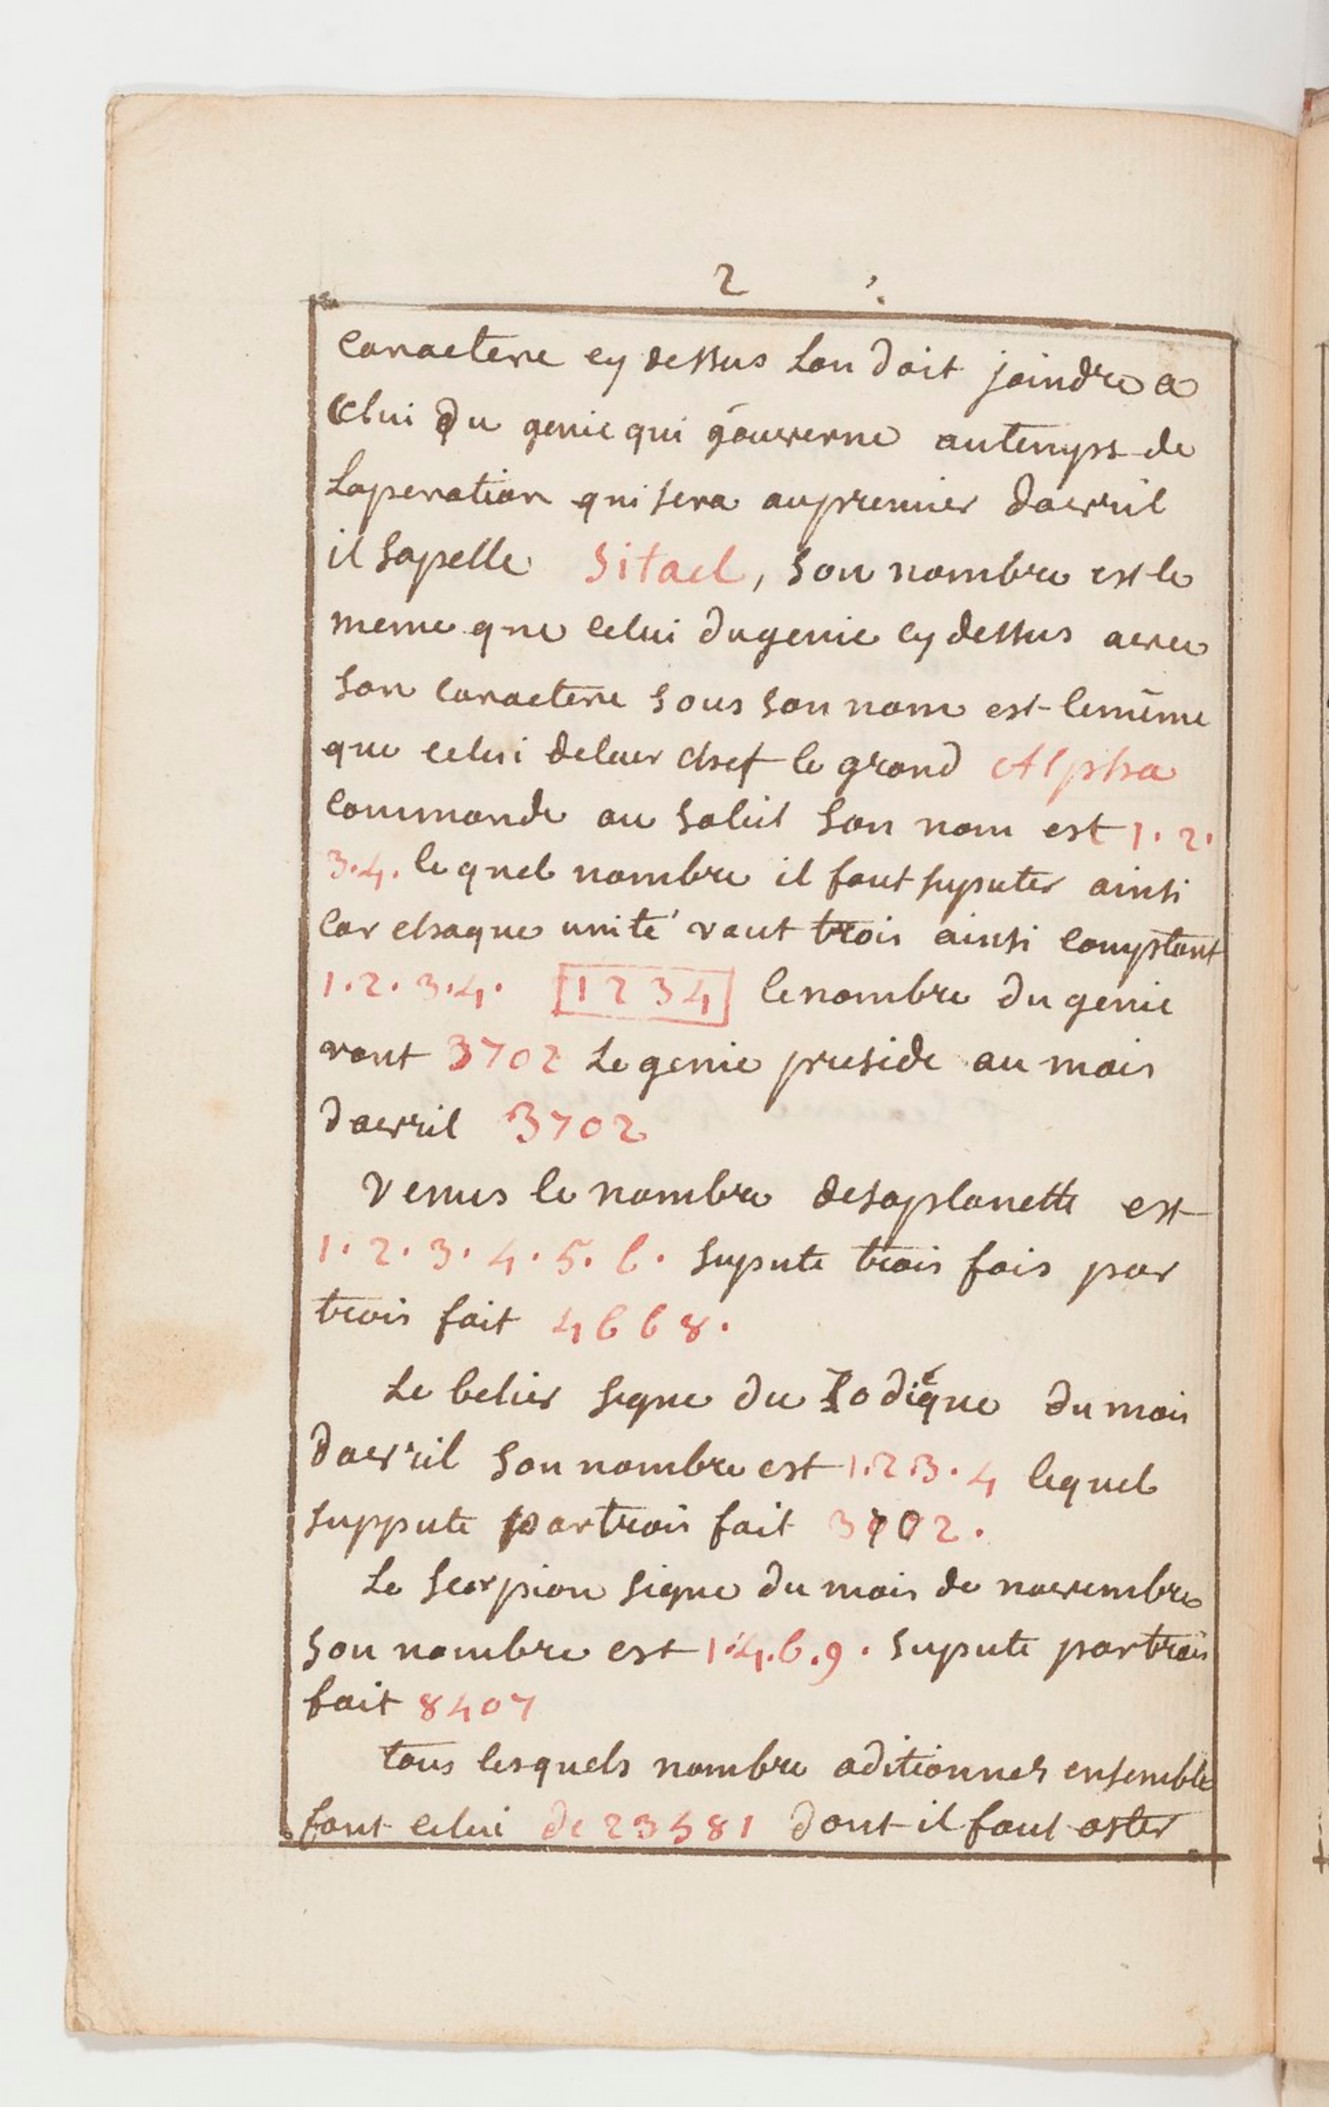 2
caractere cy dessus Lon doit joindre a
Celui du genie qui gouverne autemps de
Loperation qui sera aupremier davril
il sapelle Sitael, son nombre est le
meme que celui dugenie cy dessus avec
son caractere sous son nom est lemême
que celui deleur chef le grand Alpha
commande au soleil son nom est 1. 2.
3.4. lequel nombre il faut suputer ainsi
car chaque unité vaut trois ainsi comptant
1.2.3.4. 1234 lenombre du genie
vaut 3702 Le genie preside au mois
davril 3702
venus le nombre desaplanette est
1.2.3.4.5.6. supute trois fois par
trois fait 4668.
Le belier signe du Zodiéque du mois
davril son nombre est 1.2.3.4 lequel
suppute partrois fait 3702.
Le scorpion signe du mois de novembre
son nombre est 1.4.6.9. supute partrois
fait 8407
tous lesquels nombre aditionner ensemble
font celui de 23581 dont il faut oster